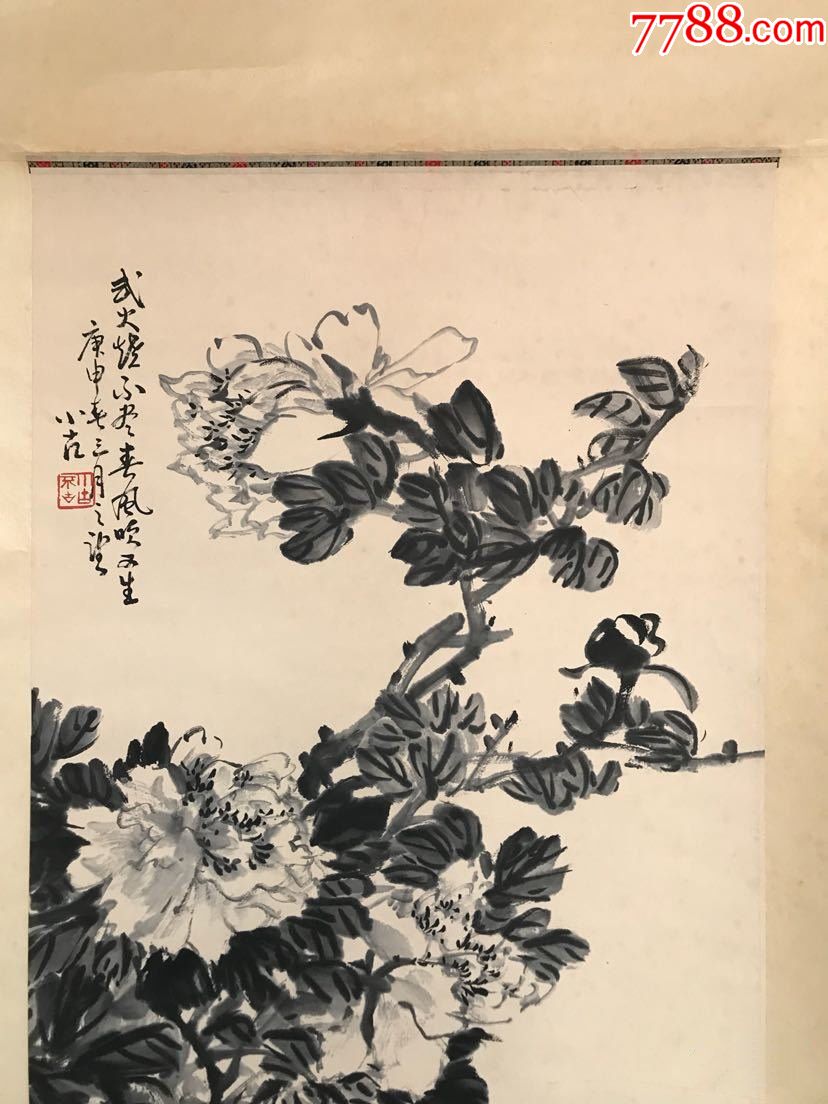 7788.com
武火燒不尽春风吹又生
庚申春三月之望
小古